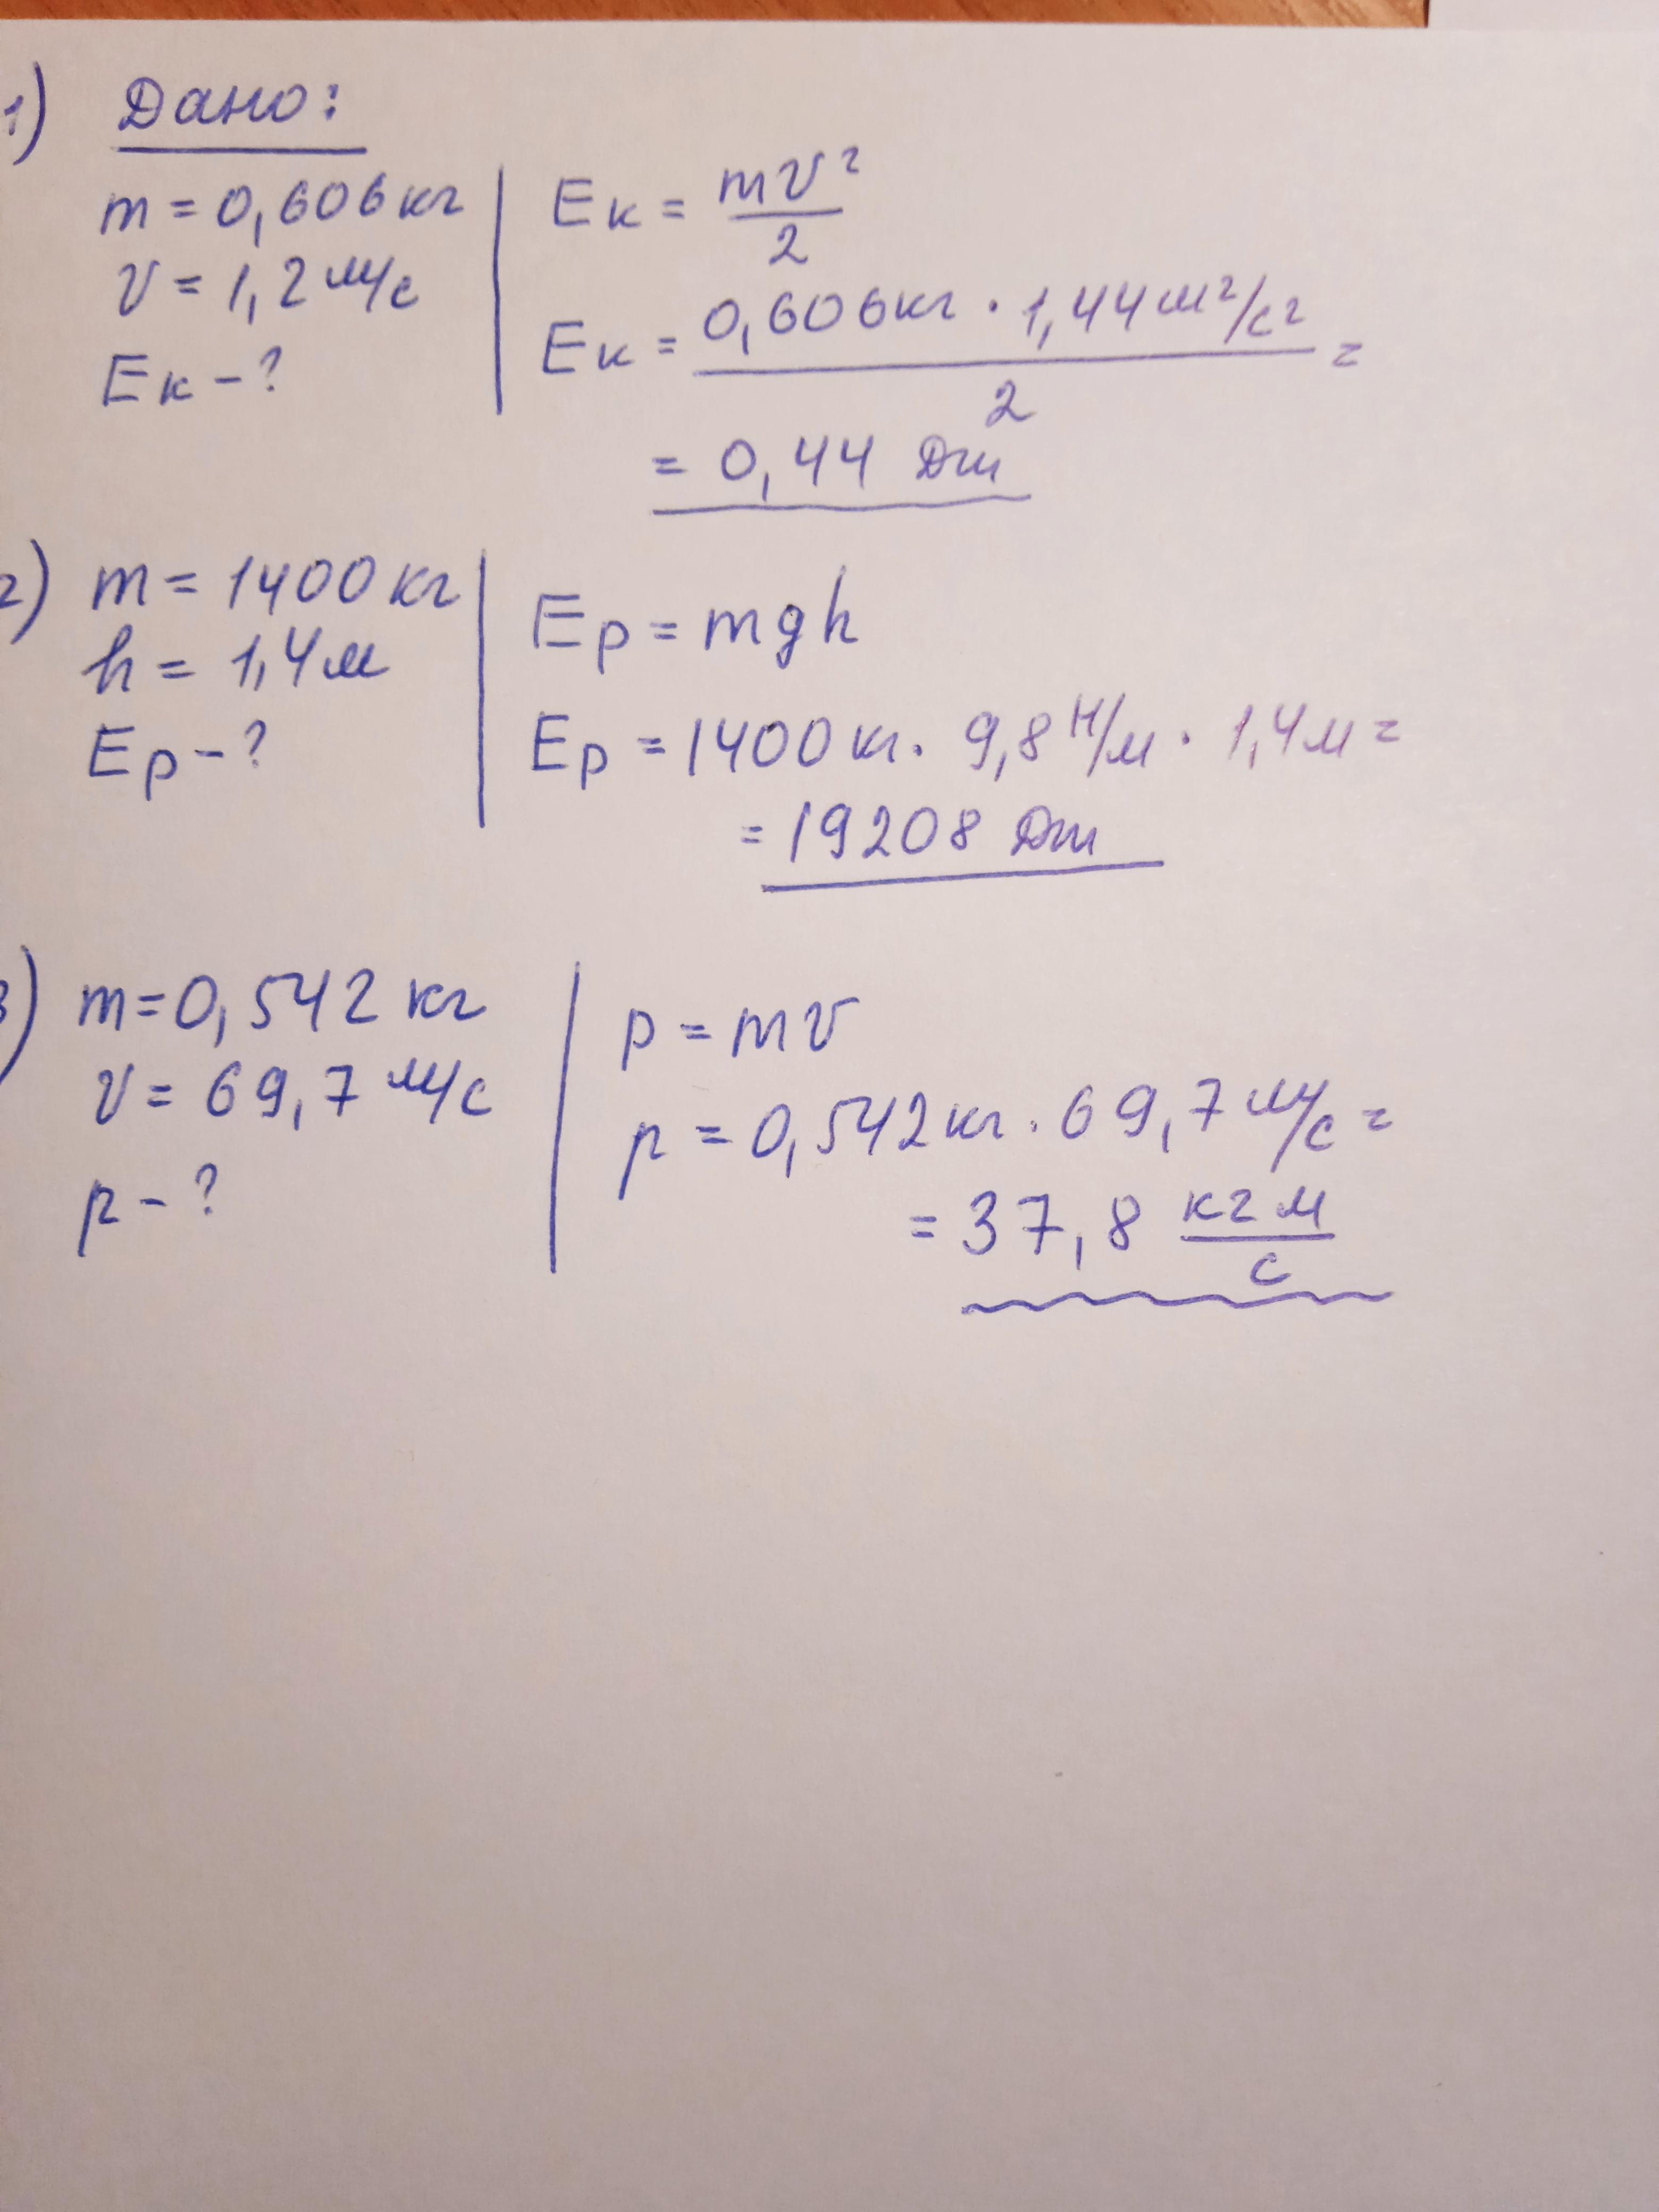 1) Дано:
m = 0,606 кг
v = 1,2 м/с
Eк - ?
Eк = mv²/2
Eк = 0,606 кг · 1,44 м²/с² / 2 =
= 0,44 Дж
2) m = 1400 кг
h = 1,4 м
Ep - ?
Ep = mgh
Ep = 1400 кг · 9,8 Н/м · 1,4 м =
= 19208 Дж
3) m = 0,542 кг
v = 69,7 м/с
p - ?
p = mv
p = 0,542 кг · 69,7 м/с =
= 37,8 кг м/с